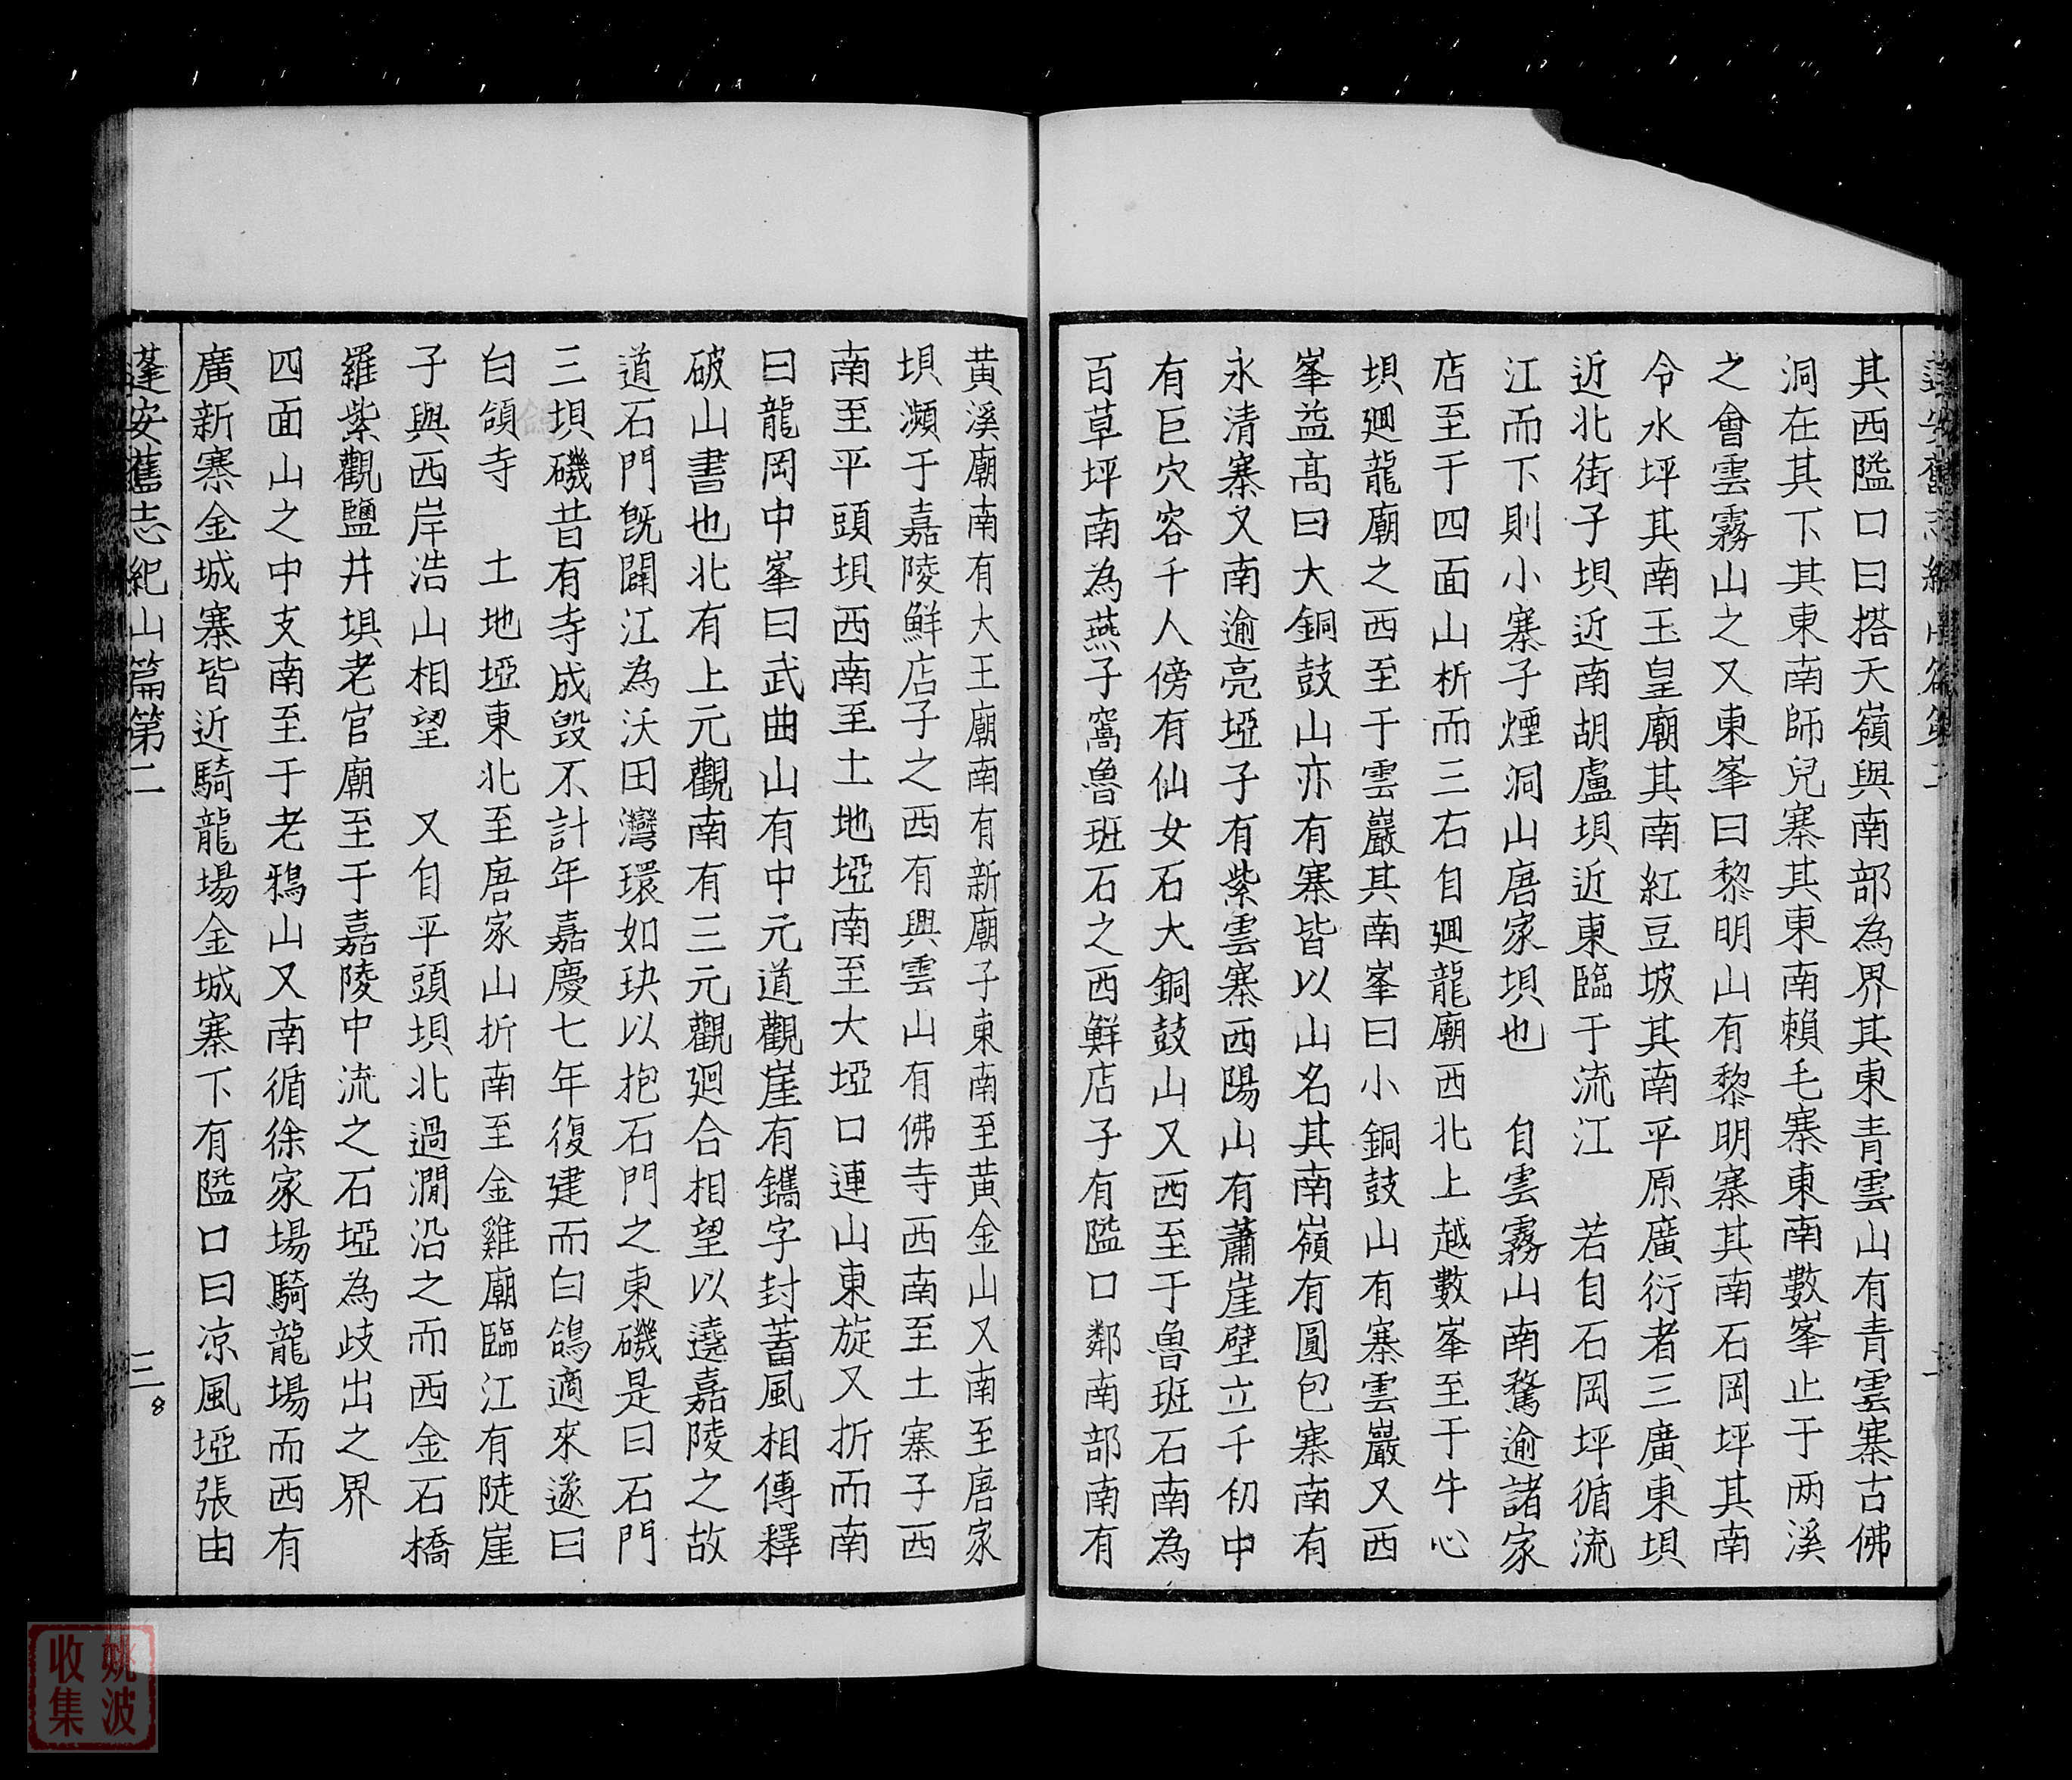 其西隘口曰搭天嶺與南部為界其東青雲山有青雲寨古佛
洞在其下其東南師兒寨其東南賴毛寨東南數峯止于两溪
之會雲霧山之又東峯曰黎明山有黎明寨其南石岡坪其南
令水坪其南玉皇廟其南紅豆坡其南平原廣衍者三廣東垻
近北街子垻近南胡盧垻近東臨于流江　若自石岡坪循流
江而下則小寨子煙洞山唐家垻也　自雲霧山南騖逾諸家
店至于四面山析而三右自廻龍廟西北上越數峯至于牛心
垻廻龍廟之西至于雲巖其南峯曰小銅鼓山有寨雲巖又西
峯益高曰大銅鼓山亦有寨皆以山名其南嶺有圓包寨南有
永清寨又南逾亮埡子有紫雲寨西陽山有蕭崖壁立千仞中
有巨穴容千人傍有仙女石大銅鼓山又西至于魯班石南為
百草坪南為燕子窩魯班石之西鮮店子有隘口鄰南部南有
黄溪廟南有大王廟南有新廟子東南至黄金山又南至唐家
垻瀕于嘉陵鮮店子之西有興雲山有佛寺西南至土寨子西
南至平頭垻西南至土地埡南至大埡口連山東旋又折而南
曰龍岡中峯曰武曲山有中元道觀崖有鐫字封蓄風相傳釋
破山書也北有上元觀南有三元觀廻合相望以遶嘉陵之故
道石門既闢江為沃田灣環如玦以抱石門之東磯是曰石門
三垻磯昔有寺成毀不計年嘉慶七年復建而白鴿適來遂曰
白鴿寺　土地埡東北至唐家山折南至金雞廟臨江有陡崖
子與西岸浩山相望　又自平頭垻北過澗沿之而西金石橋
羅紫觀鹽井垻老官廟至于嘉陵中流之石埡為歧出之界
四面山之中支南至于老鴉山又南循徐家場騎龍場而西有
廣新寨金城寨皆近騎龍場金城寨下有隘口曰凉風埡張由
蓬安舊志紀山篇第二
三
8
姚波
收集